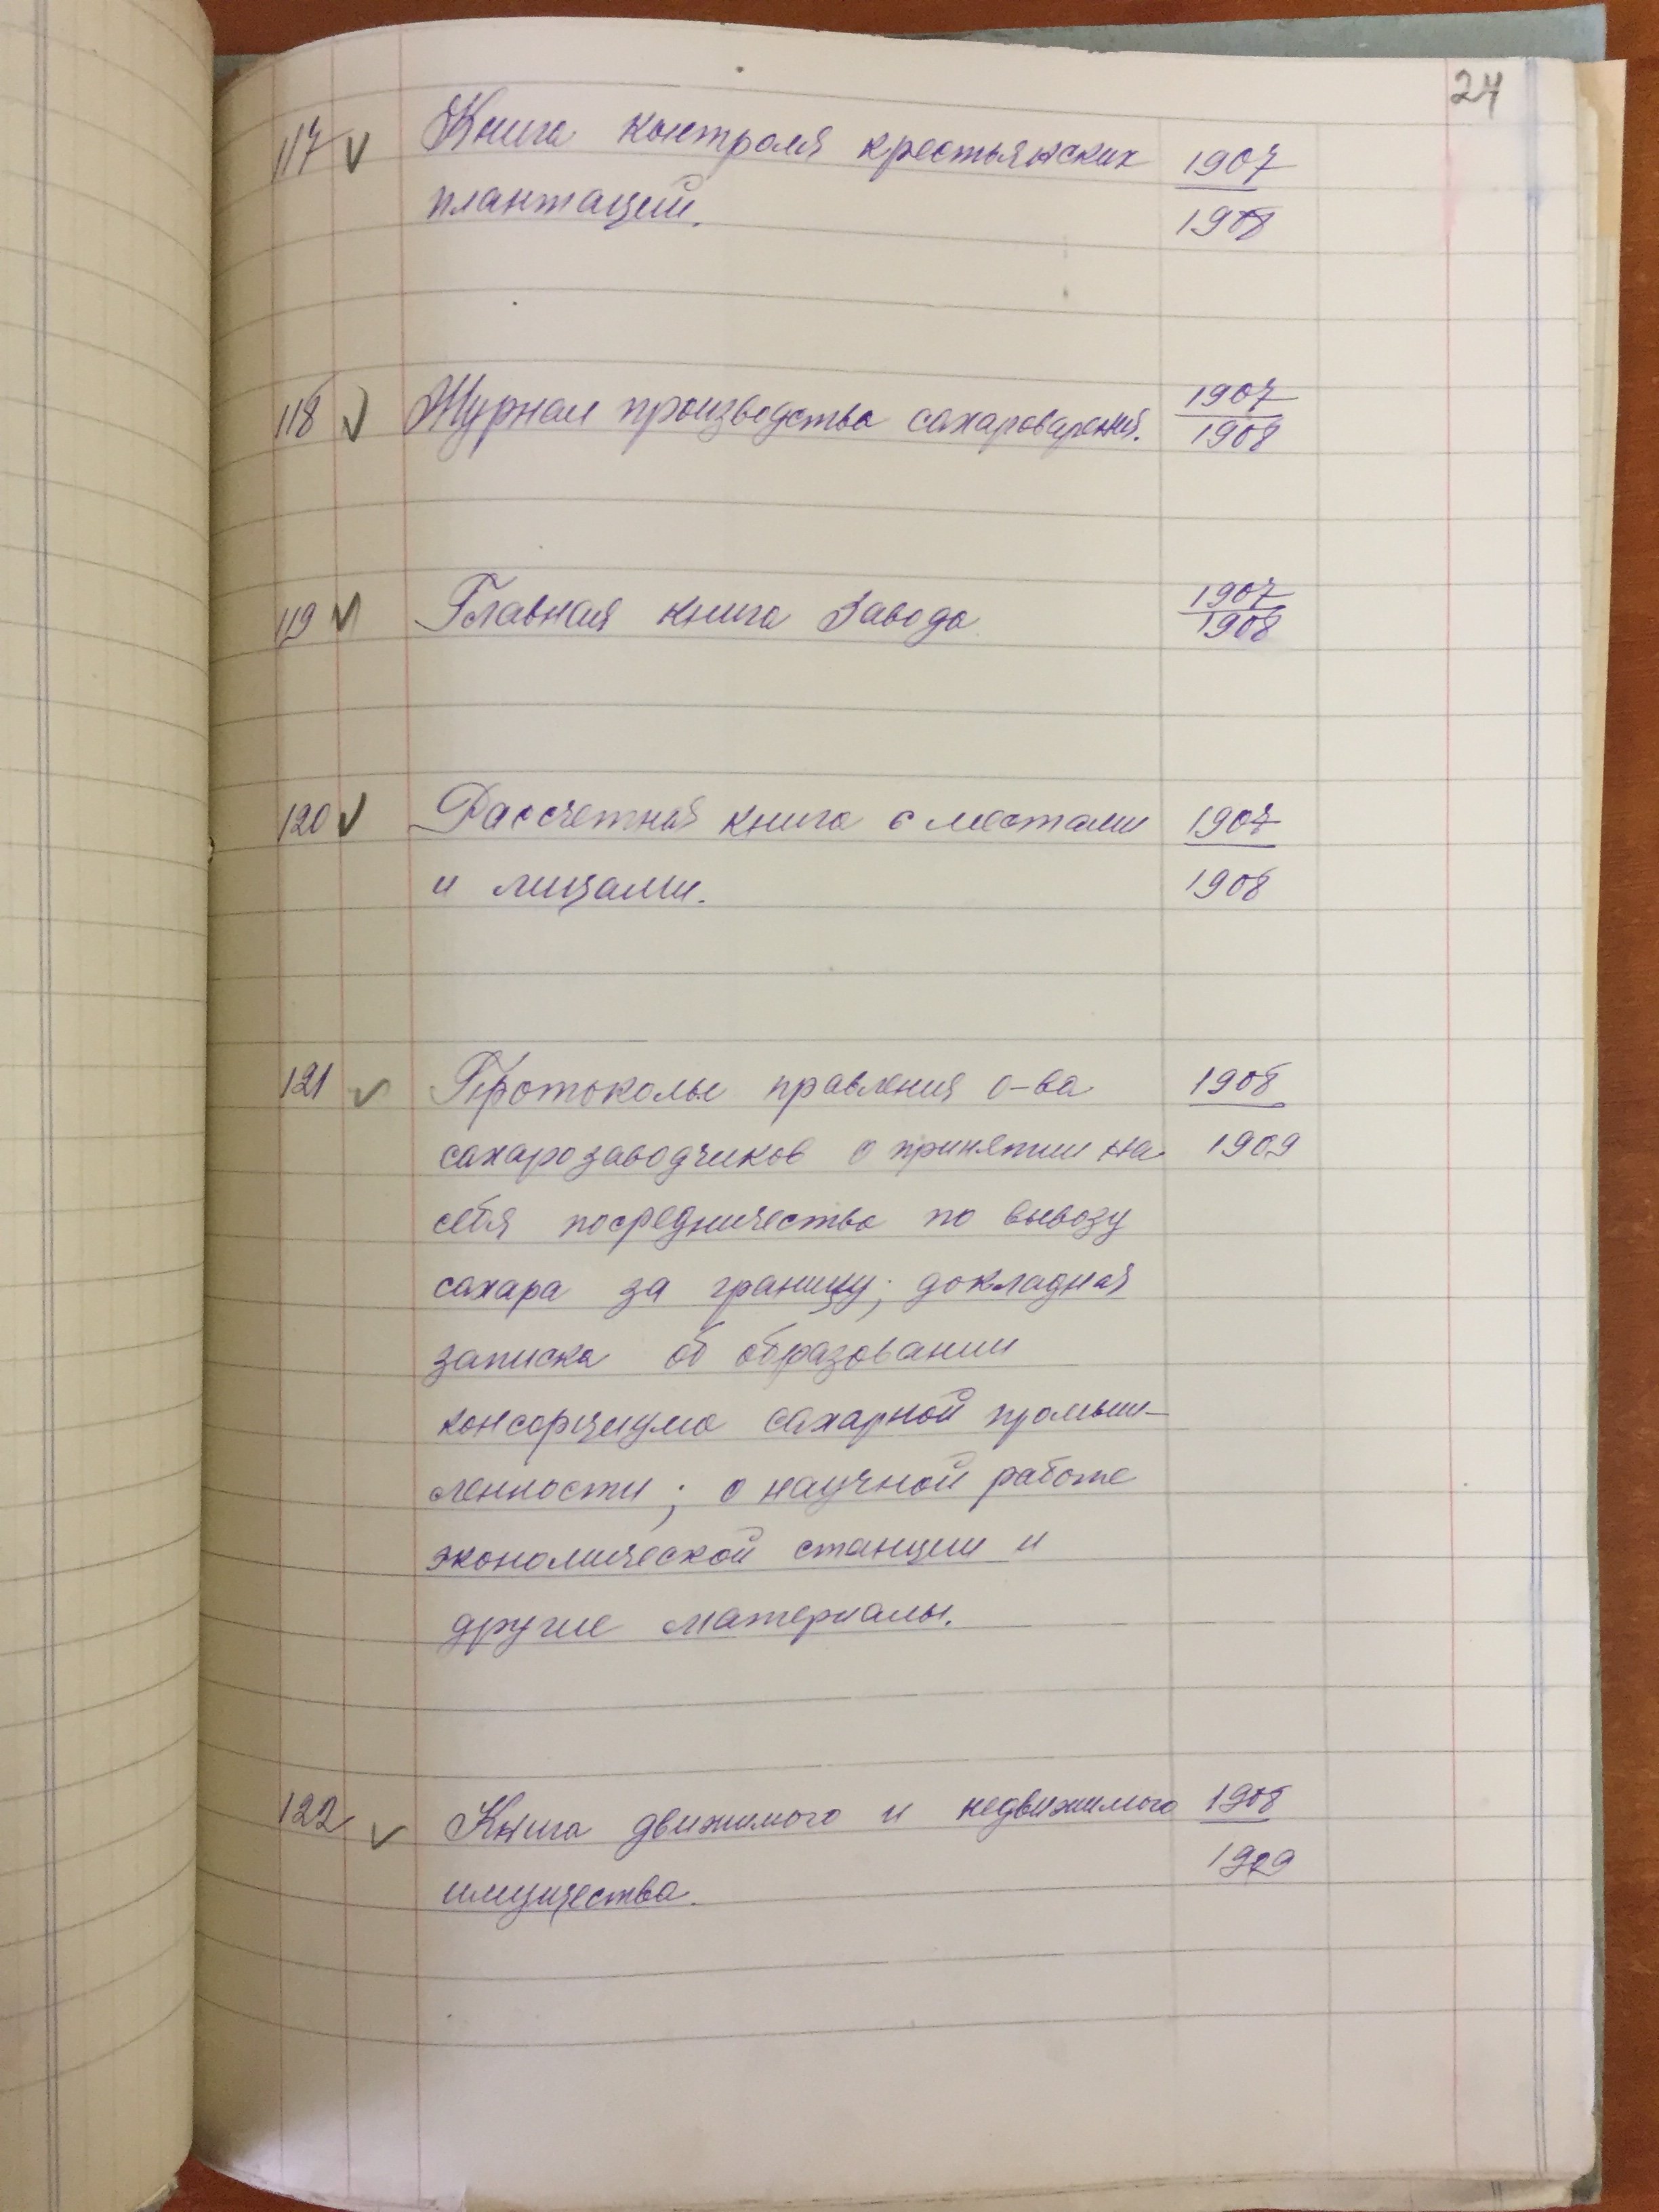 24
117 ✓ Книга контроля крестьянских 1907
плантаций. 1908
118 ✓ Журнал производства сахароварения. 1907
1908
119 ✓ Главная книга завода 1907
1908
120 ✓ Рассчетная книга с местами 1907
и лицами. 1908
121 ✓ Протоколы правления о-ва 1908
сахарозаводчиков о принятии на 1909
себя посредничества по вывозу
сахара за границу; докладная
записка об образовании
консорциума сахарной промыш-
ленности; о научной работе
экономической станции и
другие материалы.
122 ✓ Книга движимого и недвижимого 1908
имущества. 1909